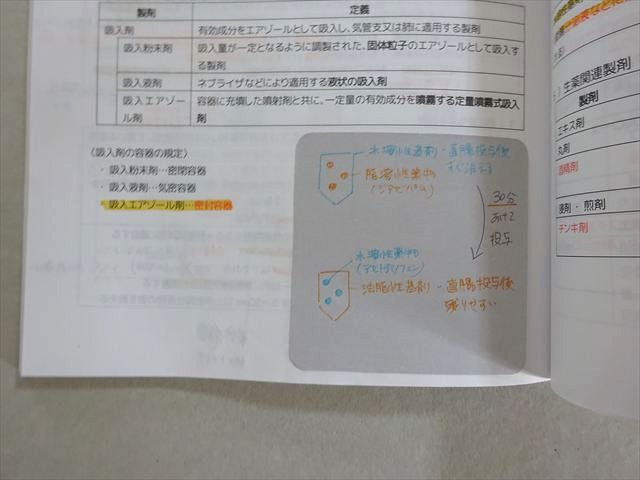 製剤 定義
吸入剤 有効成分をエアゾールとして吸入し、気管支又は肺に適用する製剤
吸入粉末剤 吸入量が一定となるように調製された、固体粒子のエアゾールとして吸入す
る製剤
吸入液剤 ネブライザなどにより適用する液状の吸入剤
吸入エアゾー 容器に充填した噴射剤と共に、一定量の有効成分を噴霧する定量噴霧式吸入
ル剤 剤
〈吸入剤の容器の規定〉
・ 吸入粉末剤…密閉容器
・ 吸入液剤…気密容器
・ 吸入エアゾール剤…密封容器
水溶性基剤・直腸投与後
脂溶性薬物
(ジアゼパム)
30分
あけて
投与
水溶性薬物
(アセトアミノフェン)
油脂性基剤・直腸投与後
残りやすい
生薬関連製剤
製剤
エキス剤
丸剤
酒精剤
浸剤・煎剤
チンキ剤